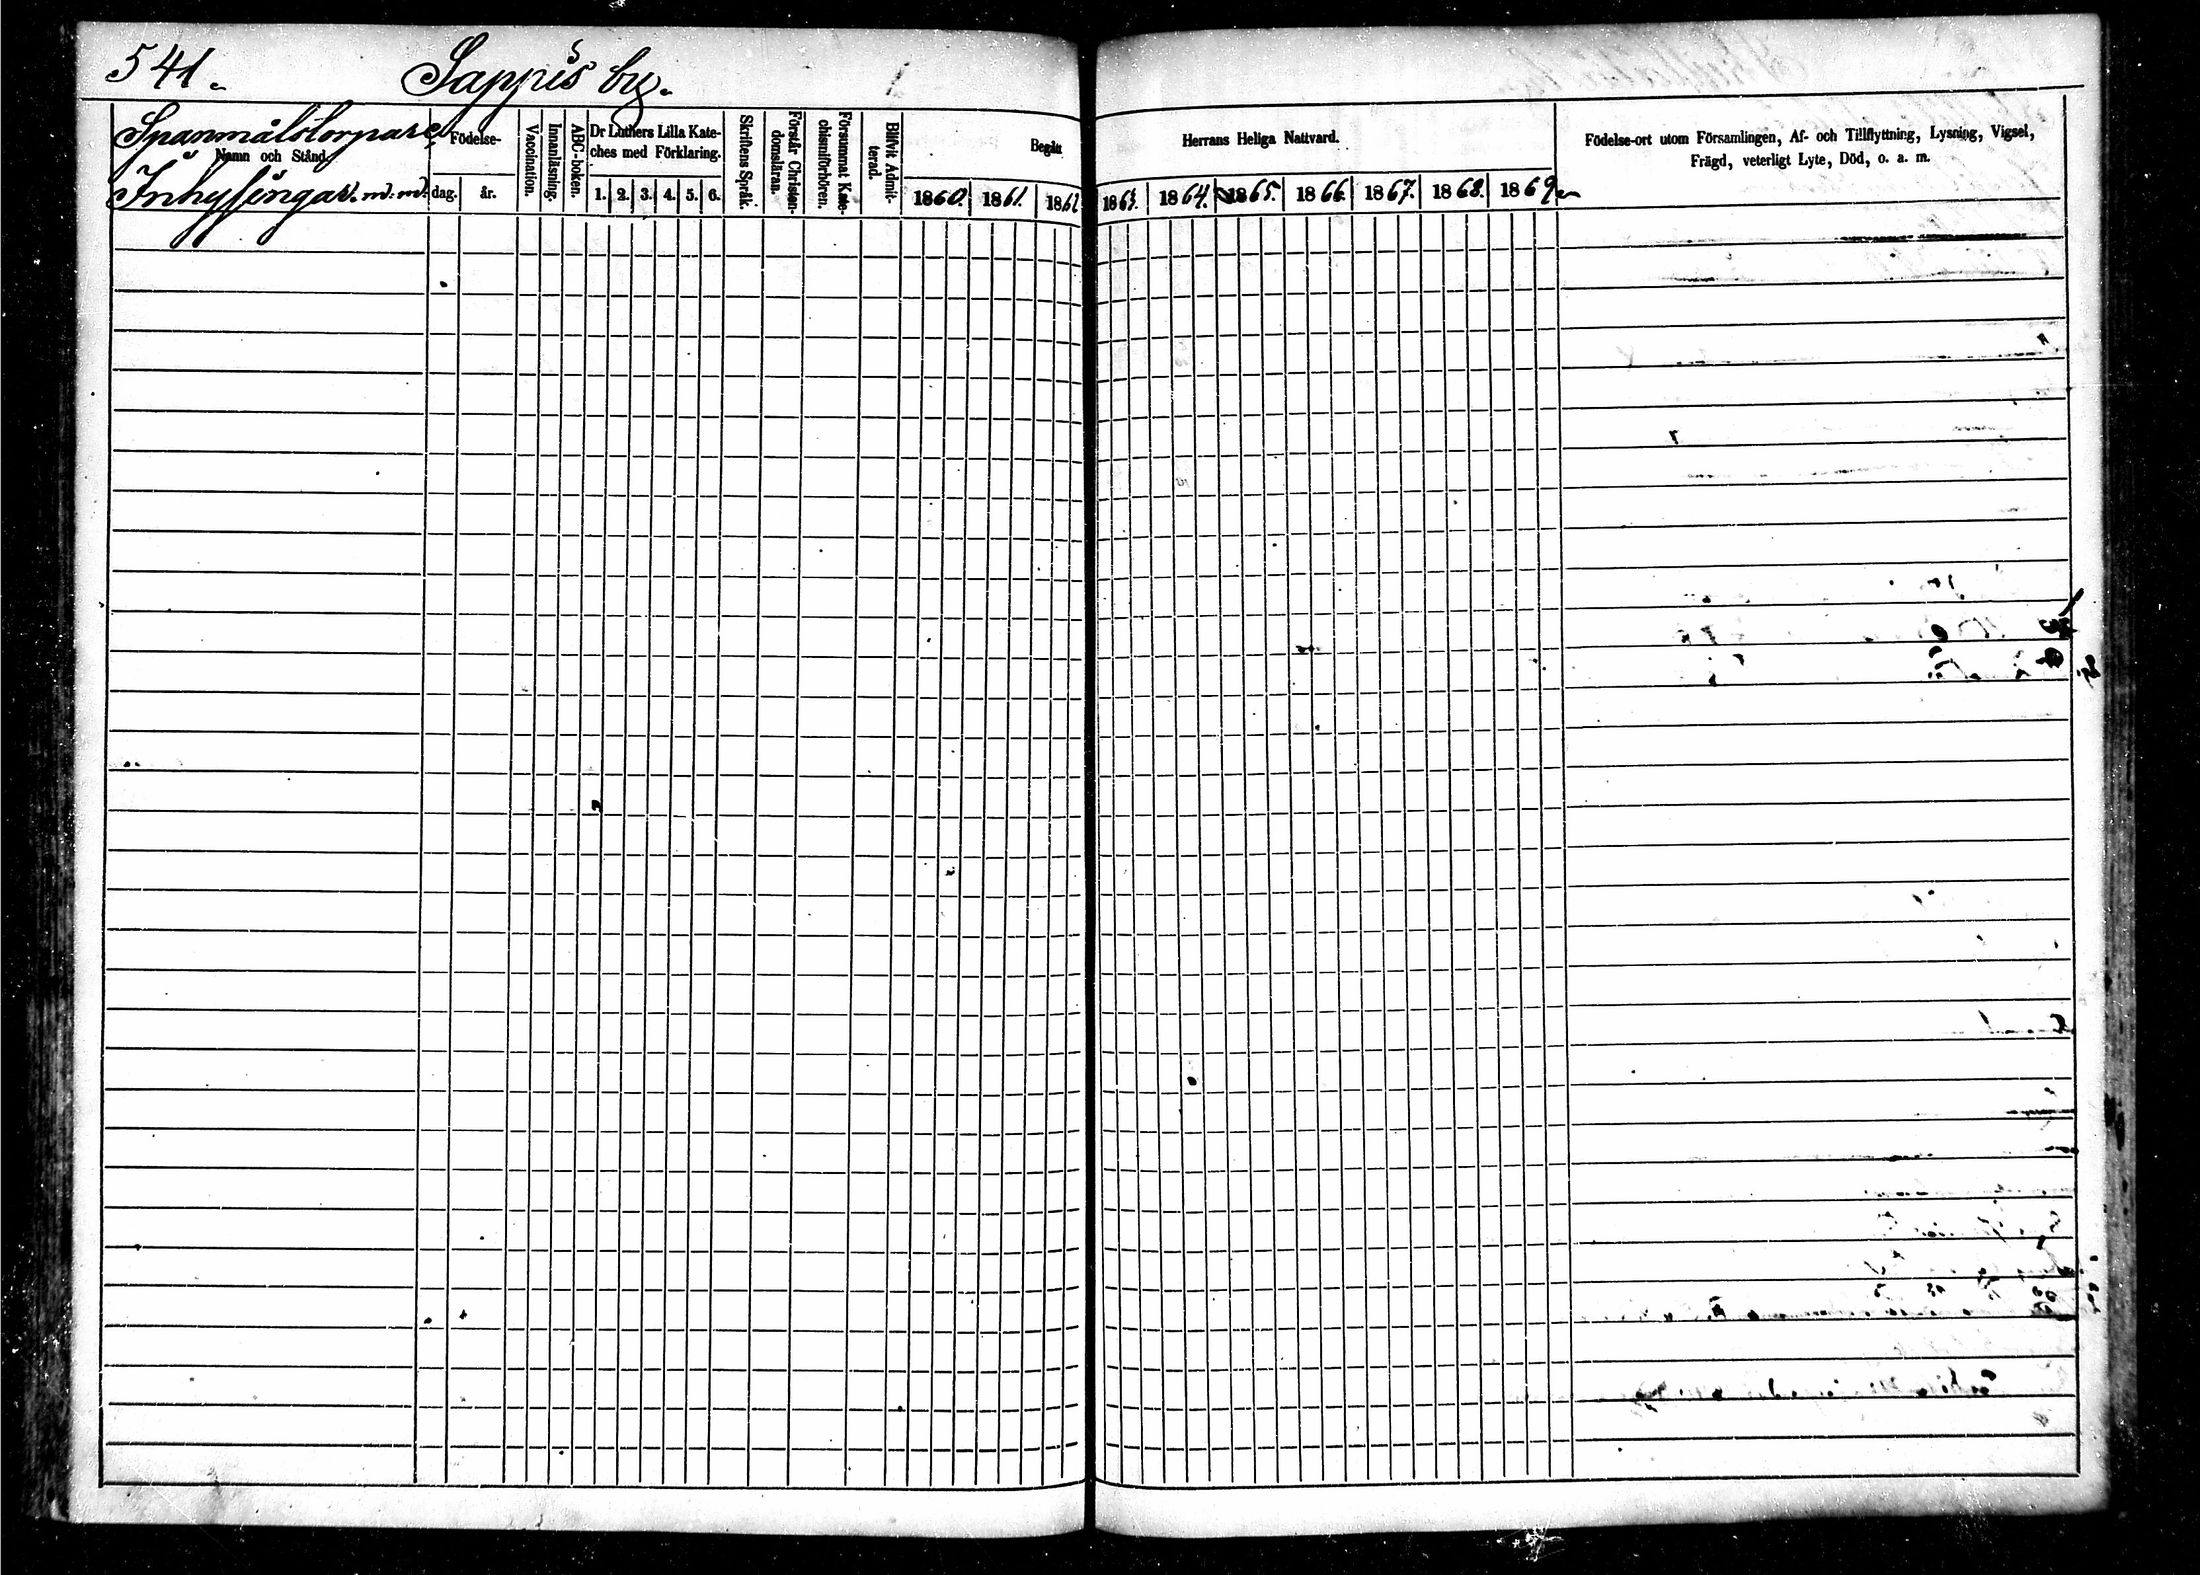 541.
Sappis by.
Spanmålstorpare,
Namn och Stånd.
Inhysingar. m. m.
Födelse-
dag.
år.
Vaccination.
Innanläsning.
ABC-boken.
Dr Luthers Lilla Kate-
ches med Förklaring.
1. 2. 3. 4. 5. 6.
Skriftens Språk.
Förstår Christen-
domsläran.
Försummat Kate-
chismiförhören.
Blifvit Admit-
terad.
Begått
1860. 1861. 1862
Herrans Heliga Nattvard.
1863. 1864. 1865. 1866. 1867. 1868. 1869.
Födelse-ort utom Församlingen, Af- och Tillflyttning, Lysning, Vigsel,
Frägd, veterligt Lyte, Död, o. a. m.